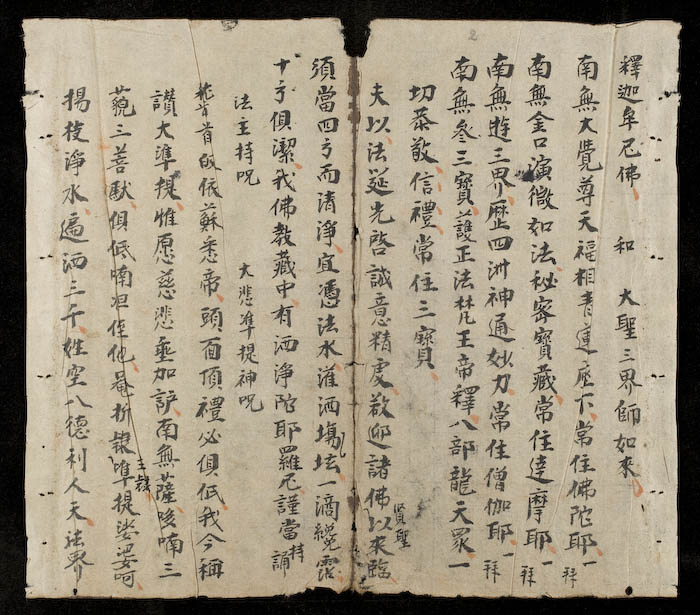 釋迦牟尼佛 和 大聖三界師如來
南無大覺尊天福相青蓮座下常住佛陀耶 一拜
南無金口演微如法秘密寶藏常住達摩耶 一拜
南無遊三界歷四洲神通妙力常住僧伽耶 一拜
南無叅三寶護正法梵王帝釋八部龍天眾一
切恭敬信禮常住三寶
夫以法筵先啓誠意精虔欲迎諸佛賢聖以來臨
須當四方而清淨宜憑法水灌洒塲坛一滴纔霑
十方俱潔我佛教藏中有洒淨陀耶羅尼謹當持誦
法主持呪 大悲凖提神呪
稽首皈依蘇悉帝頭面頂禮必俱低我今稱
讚大準提惟愿慈悲垂加護南無薩哆喃三
藐三菩馱俱低喃怛侄他菴折隸主隸凖提娑婆呵
揚枝淨水遍洒三千姓空八德利人天法界